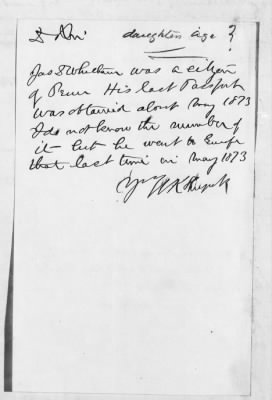 daughters age ?
Jas S Whitham was a citizen
of Penn His last Passport
was obtained about May 1873
I do not know the number of
it but he went to Europe
that last time in May 1873